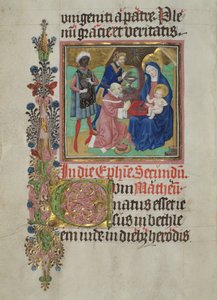 unigeniti a patre. Ple
num gratie et veritatis.
In die Ephie. Secundū.
Cum Matheū.
natus esset ie
sus in bethle
em iude in dieb9 herodis